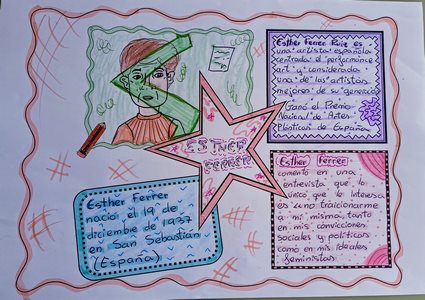 Esther Ferrer Ruiz es
una artista española
centrada el performance
art y considerada
una de las artistas
mejores de su generación
Ganó el Premio
Nacional de Artes
Plásticas de España.
ESTHER
FERRER
Esther Ferrer
nació el 19 de
diciembre de 1937
en San Sebastián
(España)
Esther Ferrer
comentó en una
entrevista que lo
único que le interesa
es no traicionarme
a mi misma, tanto
en mis convicciones
sociales y políticas
como en mis ideales
feministas.